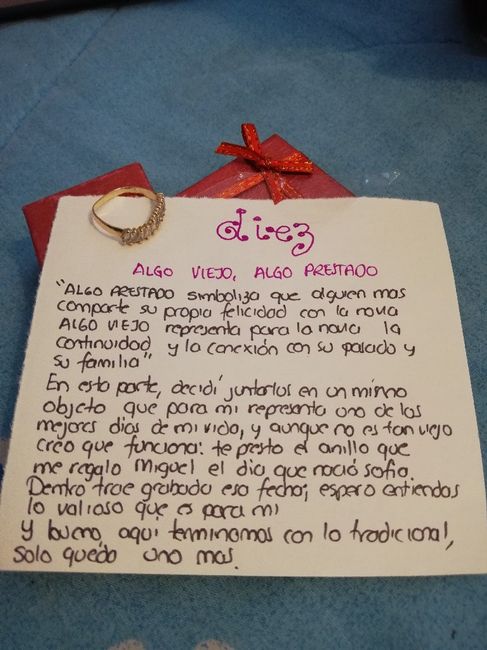 diez
ALGO VIEJO, ALGO PRESTADO
"ALGO PRESTADO simboliza que alguien mas
comparte su propia felicidad con la novia
ALGO VIEJO representa para la novia la
continuidad y la conexión con su pasado y
su familia"
En esta parte, decidí juntarlos en un mismo
objeto que para mi representa uno de los
mejores dias de mi vida, y aunque no es tan viejo
creo que funciona: te presto el anillo que
me regalo Miguel el dia que nació sofia.
Dentro trae grabada esa fecha; espero entiendas
lo valioso que es para mi
Y bueno, aqui terminamos con lo tradicional,
solo queda uno mas.